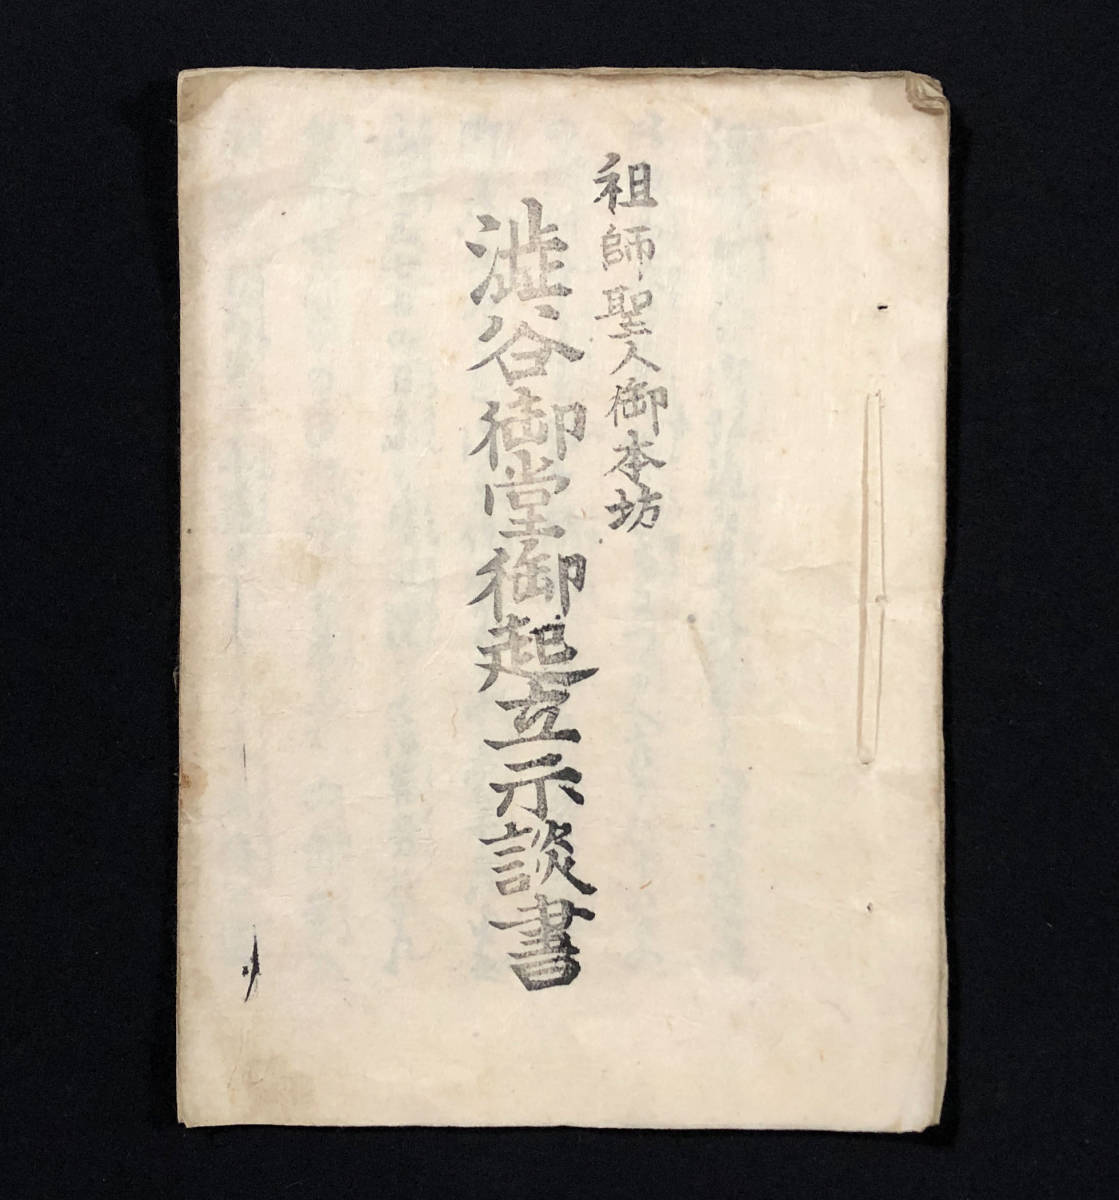 祖師聖人御本坊
澁谷御堂御起立示談書